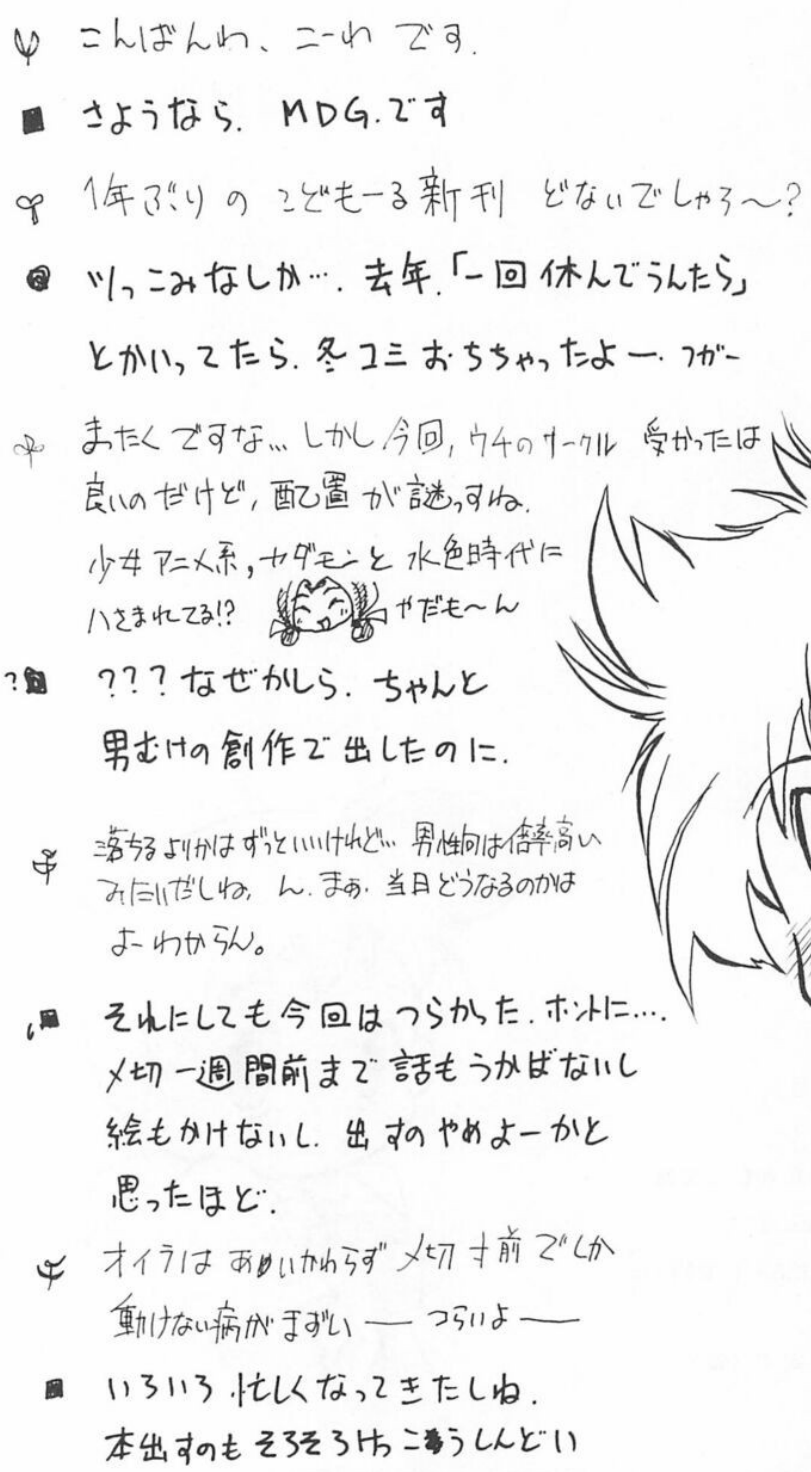 こんばんわ、ニーわ です.
さようなら. MDG.です
1年ぶりの こどもーる新刊 どないでしゃろ〜?
ツっこみなしか…. 去年.「一回休んでうんたら」
とかいってたら. 冬コミおちちゃったよー. フガー
またくですな… しかし今回, ウチのサークル 受かったは
良いのだけど, 配置が謎っすね.
少女アニメ系, ヤダモンと 水色時代に
ハさまれてる!? やだも〜ん
? ???なぜかしら. ちゃんと
男むけの創作で出したのに.
落ちるよりかはずっといいけれど… 男性向は倍率高い
みたいだしね, ん. まぁ. 当日どうなるのかは
よーわからん。
それにしても今回はつらかった. ホントに….
〆切一週間前まで話もうかばないし
絵もかけないし. 出すのやめよーかと
思ったほど.
オイラはあいかわらず〆切寸前でしか
動けない病がまずいー つらいよー
いろいろ忙しくなってきたしね.
本出すのもそろそろけっこうしんどい